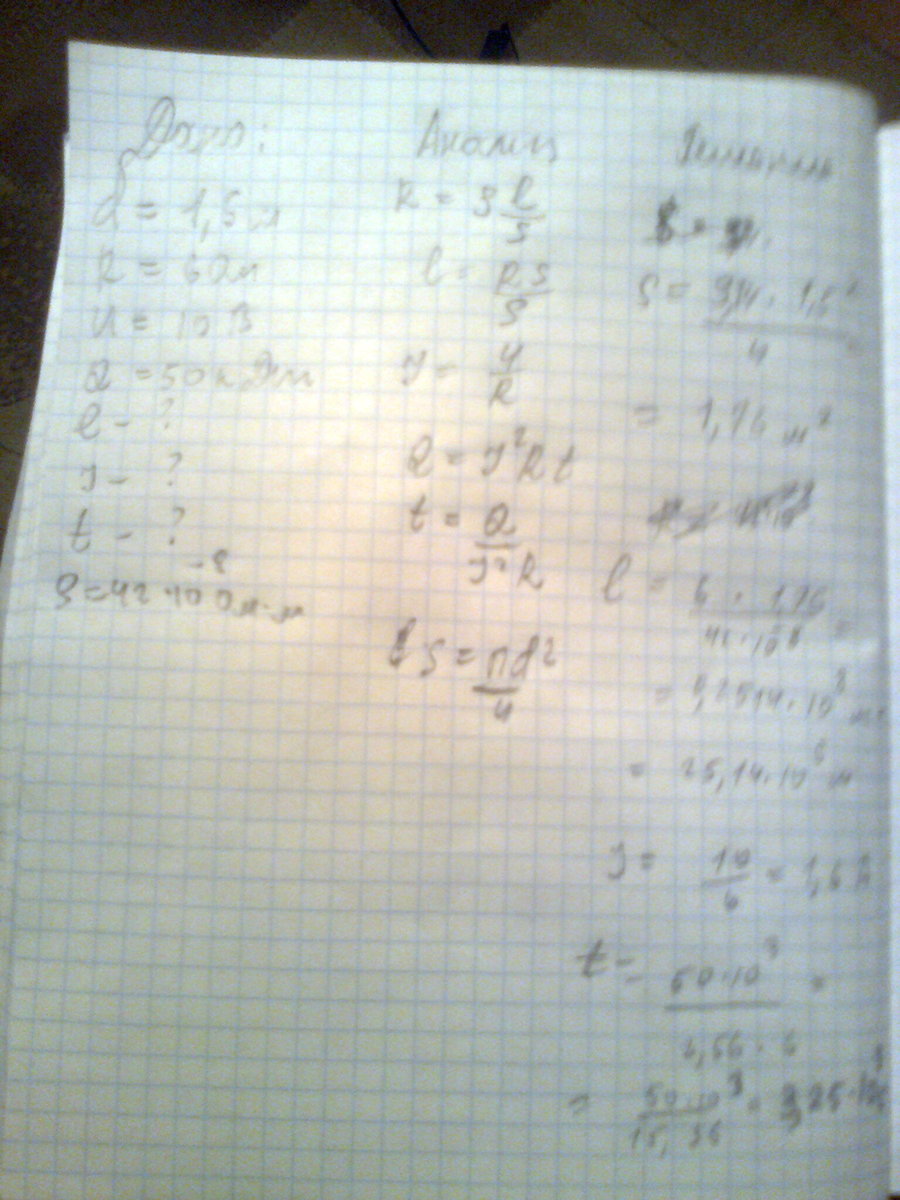 Дано:
d = 1,5 м
R = 6 Ом
U = 10 В
Q = 50 кДж
l - ?
J - ?
t - ?
ρ = 42 · 10⁻⁸ Ом · м
Анализ
R = ρ l/S
l = RS/ρ
J = U/R
Q = J²Rt
t = Q/J²R
S = πd²/4
Решение
S = 3,14 · 1,5²/4
= 1,76 м²
l = 6 · 1,76/42 · 10⁻⁸ =
= 25,14 · 10⁶ м
J = 10/6 = 1,6 А
t =
50 · 10³/2,56 · 6 =
= 50 · 10³/15,36 =